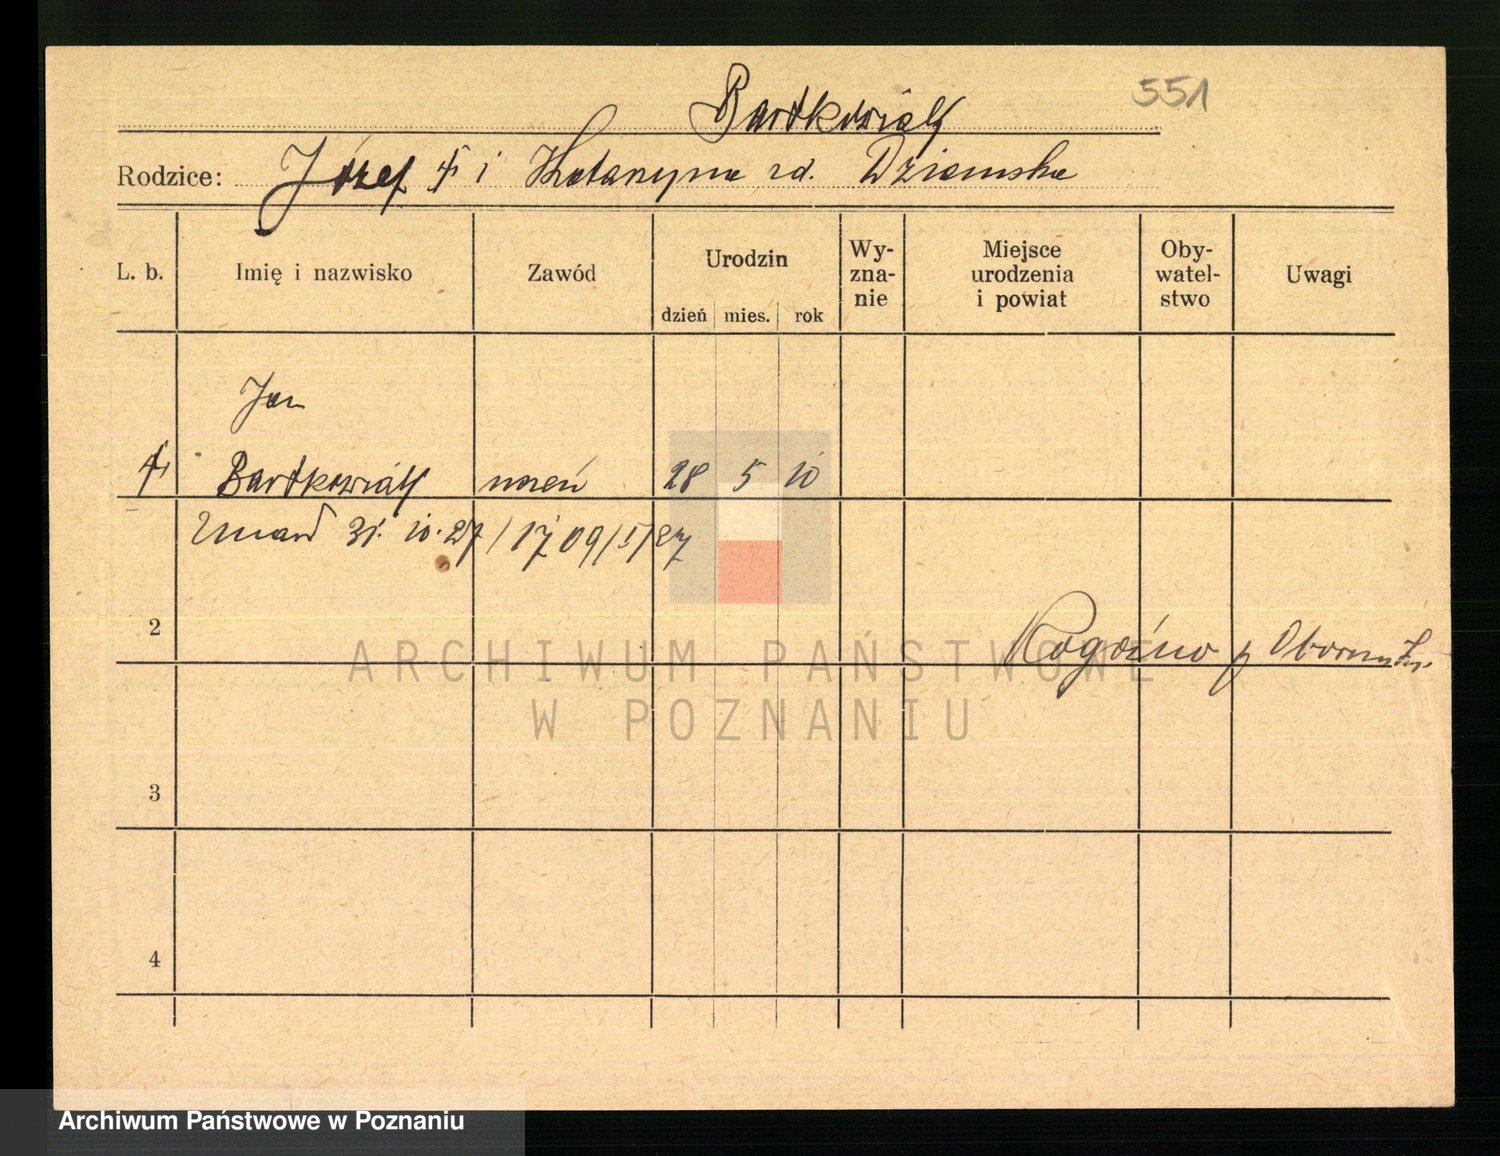 551
Bartkowiak
Rodzice: Józef i Katarzyna rd. Dziemska
L. b. Imię i nazwisko Zawód Urodzin dzień mies. rok Wy-zna-nie Miejsce urodzenia i powiat Oby-watel-stwo Uwagi
Jan
Bartkowiak uczeń 28 5 10
Zmarł 31. 10. 27 / 1709/V/27
2
Rogoźno p Oborniki
ARCHIWUM PAŃSTWOWE
W POZNANIU
3
4
Archiwum Państwowe w Poznaniu